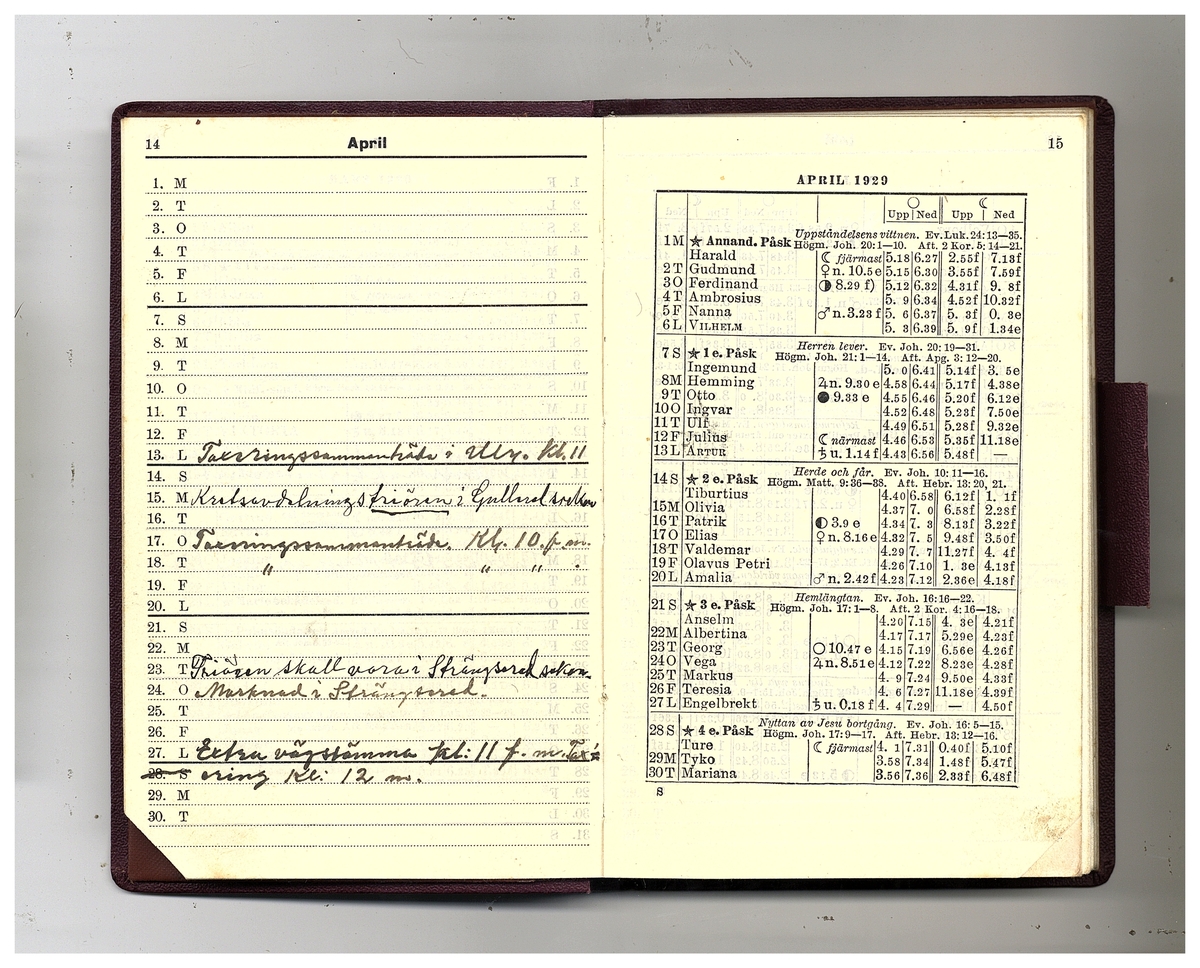 14 April
1. M
2. T
3. O
4. T
5. F
6. L
7. S
8. M
9. T
10. O
11. T
12. F
13. L Taxeringssammanträde i Ulr. Kl. 11
14. S
15. M Kretsavdelningstriören i Gullered socken
16. T
17. O Taxeringssammanträde. Kl. 10. f m.
18. T " " " .
19. F
20. L
21. S
22. M
23. T Triören skall vara i Strängsered socken.
24. O Marknad i Strängsered.
25. T
26. F
27. L Extra vägstämma kl: 11 f. m. Tax-
28. S ering Kl: 12 m.
29. M
30. T
15
APRIL 1929
Upp Ned Upp Ned
1 M ★ Annand. Påsk Uppståndelsens vittnen. Ev. Luk. 24: 13—35.
Högm. Joh. 20: 1—10. Aft. 2 Kor. 5: 14—21.
Harald ☾ fjärmast 5.18 6.27 2.55f 7.13f
2 T Gudmund ♀ n. 10.5 e 5.15 6.30 3.55f 7.59f
3 O Ferdinand ◑ 8.29 f) 5.12 6.32 4.31f 9. 8f
4 T Ambrosius 5. 9 6.34 4.52f 10.32f
5 F Nanna ♂ n. 3.23 f 5. 6 6.37 5. 3f 0. 3e
6 L VILHELM 5. 3 6.39 5. 9f 1.34e
7 S ★ 1 e. Påsk Herren lever. Ev. Joh. 20: 19—31.
Högm. Joh. 21: 1—14. Aft. Apg. 3: 12—20.
Ingemund 5. 0 6.41 5.14f 3. 5e
8 M Hemming ♃ n. 9.30 e 4.58 6.44 5.17f 4.38e
9 T Otto ● 9.33 e 4.55 6.46 5.20f 6.12e
10 O Ingvar 4.52 6.48 5.23f 7.50e
11 T Ulf 4.49 6.51 5.28f 9.32e
12 F Julius ☾ närmast 4.46 6.53 5.35f 11.18e
13 L ARTUR ♄ u. 1.14 f 4.43 6.56 5.48f —
14 S ★ 2 e. Påsk Herde och får. Ev. Joh. 10: 11—16.
Högm. Matt. 9: 36—38. Aft. Hebr. 13: 20, 21.
Tiburtius 4.40 6.58 6.12f 1. 1f
15 M Olivia 4.37 7. 0 6.58f 2.28f
16 T Patrik ◐ 3.9 e 4.34 7. 3 8.13f 3.22f
17 O Elias ♀ n. 8.16 e 4.32 7. 5 9.48f 3.50f
18 T Valdemar 4.29 7. 7 11.27f 4. 4f
19 F Olavus Petri 4.26 7.10 1. 3e 4.13f
20 L Amalia ♂ n. 2.42 f 4.23 7.12 2.36e 4.18f
21 S ★ 3 e. Påsk Hemlängtan. Ev. Joh. 16: 16—22.
Högm. Joh. 17: 1—8. Aft. 2 Kor. 4: 16—18.
Anselm 4.20 7.15 4. 3e 4.21f
22 M Albertina 4.17 7.17 5.29e 4.23f
23 T Georg ○ 10.47 e 4.15 7.19 6.56e 4.26f
24 O Vega ♃ n. 8.51 e 4.12 7.22 8.23e 4.28f
25 T Markus 4. 9 7.24 9.50e 4.33f
26 F Teresia 4. 6 7.27 11.18e 4.39f
27 L Engelbrekt ♄ u. 0.18 f 4. 4 7.29 — 4.50f
28 S ★ 4 e. Påsk Nyttan av Jesu bortgång. Ev. Joh. 16: 5—15.
Högm. Joh. 17: 9—17. Aft. Hebr. 13: 12—16.
Ture ☾ fjärmast 4. 1 7.31 0.40f 5.10f
29 M Tyko 3.58 7.34 1.48f 5.47f
30 T Mariana 3.56 7.36 2.33f 6.48f
S